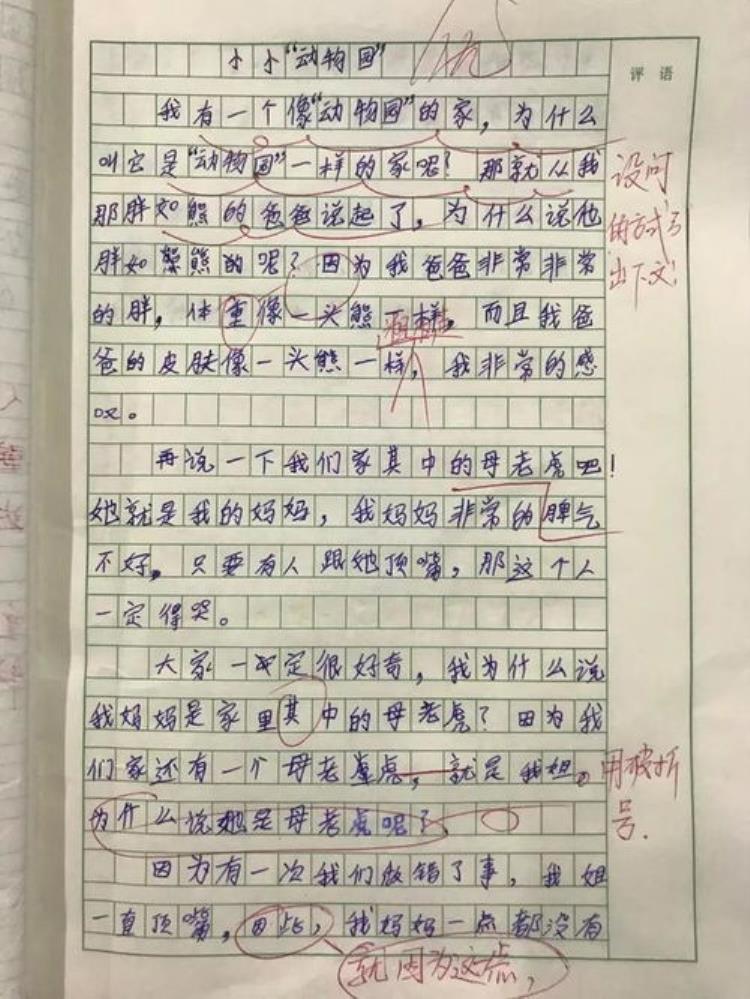 小小“动物园”
优
评语
我有一个像“动物园”的家，为什么
叫它是“动物园”一样的家呢？那就从我
那胖如熊的爸爸说起了，为什么说他
胖如熊的呢？因为我爸爸非常非常
的胖，体重像一头熊一样，而且我爸
爸的皮肤像一头熊一样，我非常的感
叹。
再说一下我们家其中的母老虎吧！
她就是我的妈妈，我妈妈非常的脾气
不好，只要有人跟她顶嘴，那这个人
一定得哭。
大家一定很好奇，我为什么说
我妈妈是家里其中的母老虎？因为我
们家还有一个母老虎，就是我姐。
为什么说她是母老虎呢？
因为有一次我们做错了事，我姐
一直顶嘴，因此，我妈妈一点都没有
设问
的方式引
出下文！
用破折
号.
就因为这点，